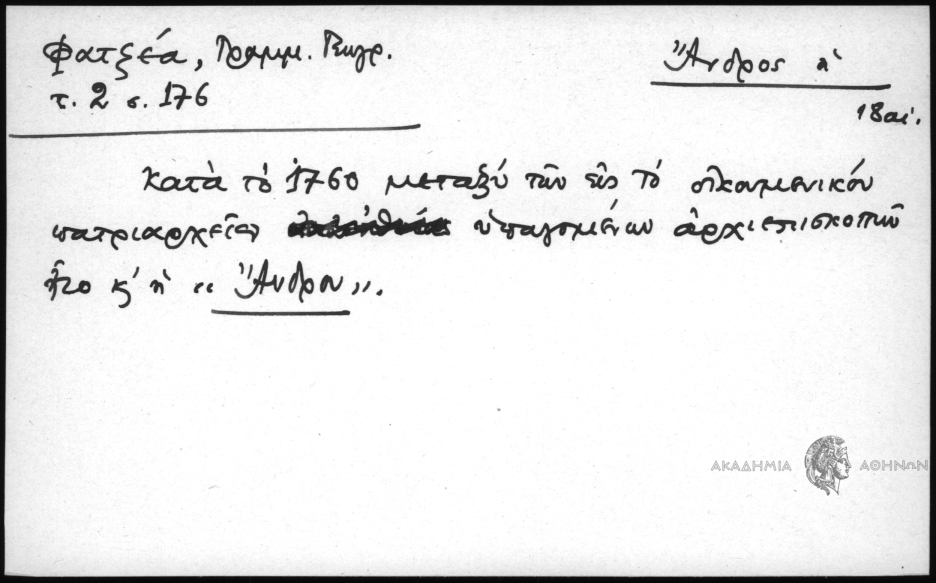 Φατζέα, Γραμμ. Γεωγρ.
τ. 2 σ. 176
Ἄνδρος ἡ
18 αἰ.
Κατὰ τὸ 1760 μεταξὺ τῶν εἰς τὸ οἰκουμενικόν
πατριαρχεῖον ὑπαγομένων ἀρχιεπισκοπῶν
ἦτο κ' ἡ « Ἄνδρου ».
ΑΚΑΔΗΜΙΑ ΑΘΗΝΩΝ